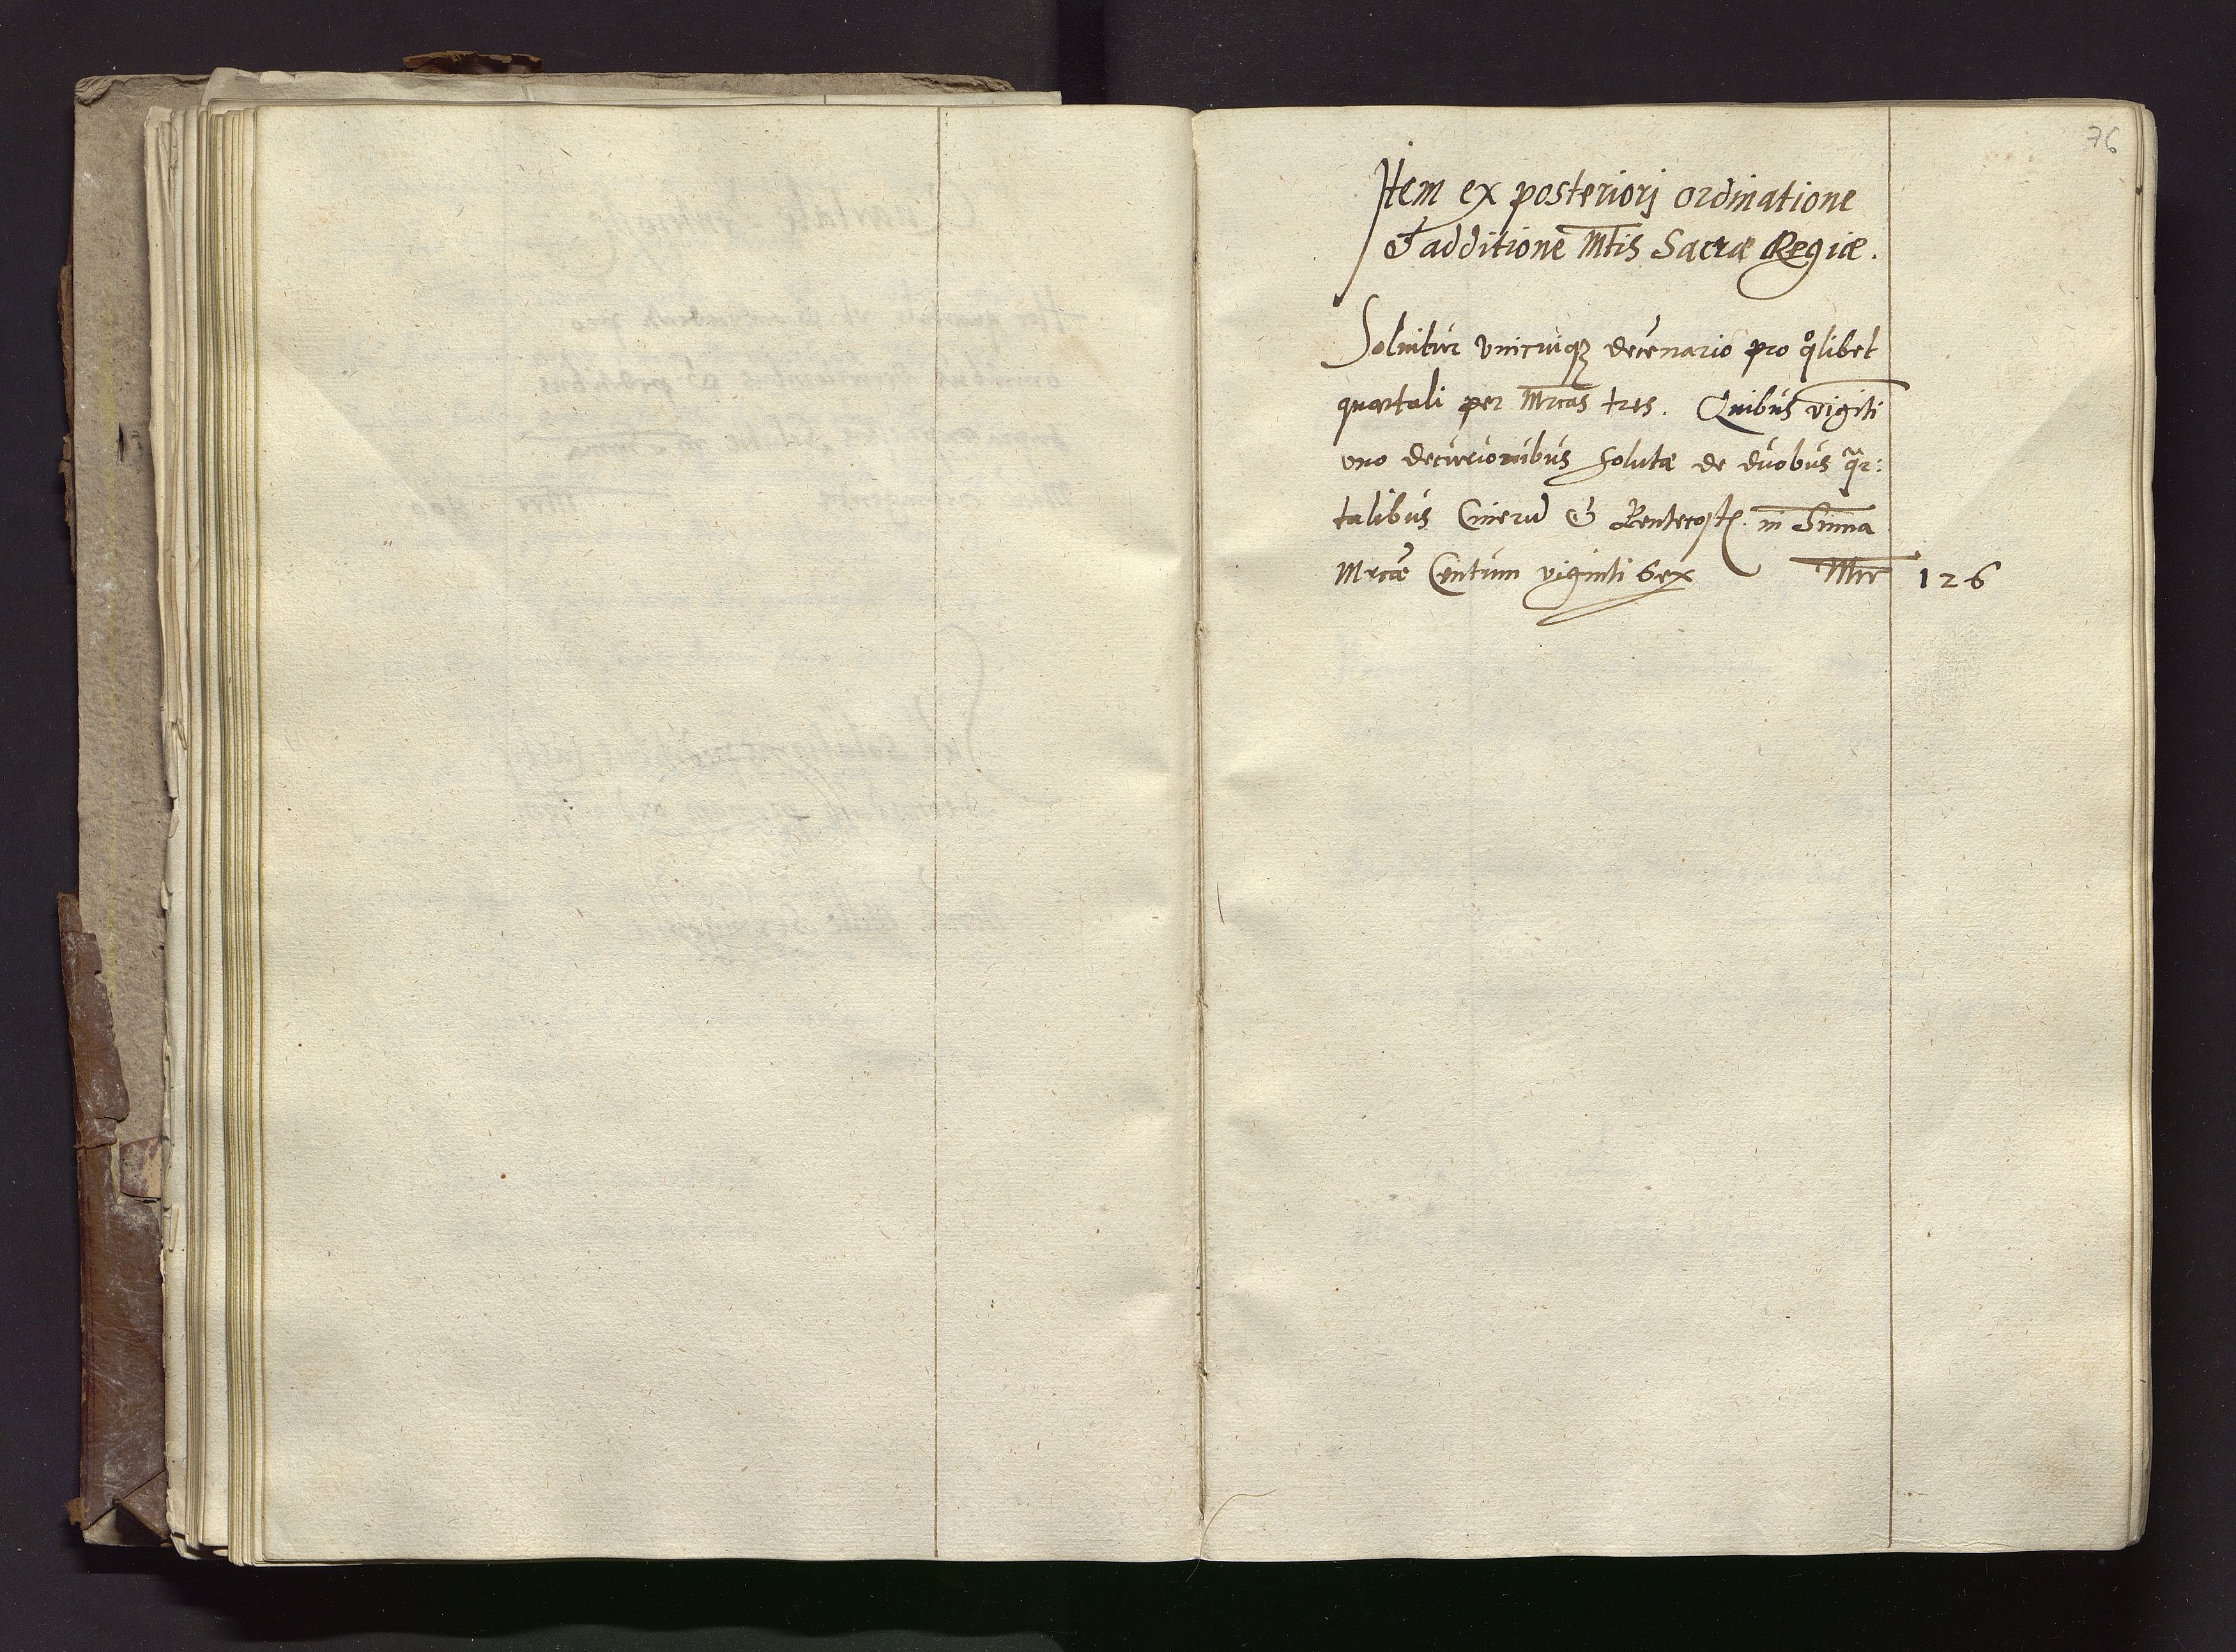 76
Item ex posteriorj ordinatione
& additione Mtis Sacræ Regiæ.
Soluitur vnicuiqȝ decenario pro qlibet
quartali per Mrcas tres. Quibus vigiti
vno decurionibus solutæ de duobus qr:
talibus Cinerū & Pentecost. in Suma
Mrcæ Centum viginti sex Mrc 126